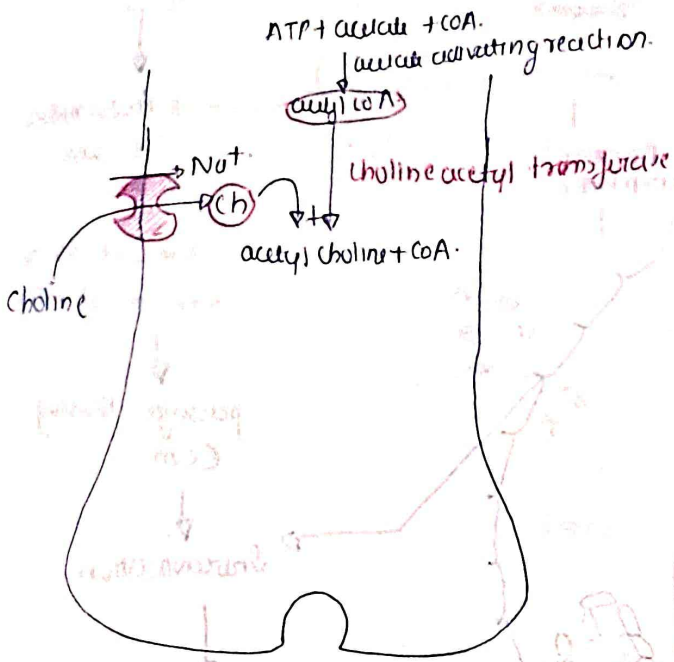 ATP + acetate + COA.
acetate activating reaction.
acetyl COA
Na+
choline acetyl transferase
Ch
+
acetyl choline + CoA.
Choline